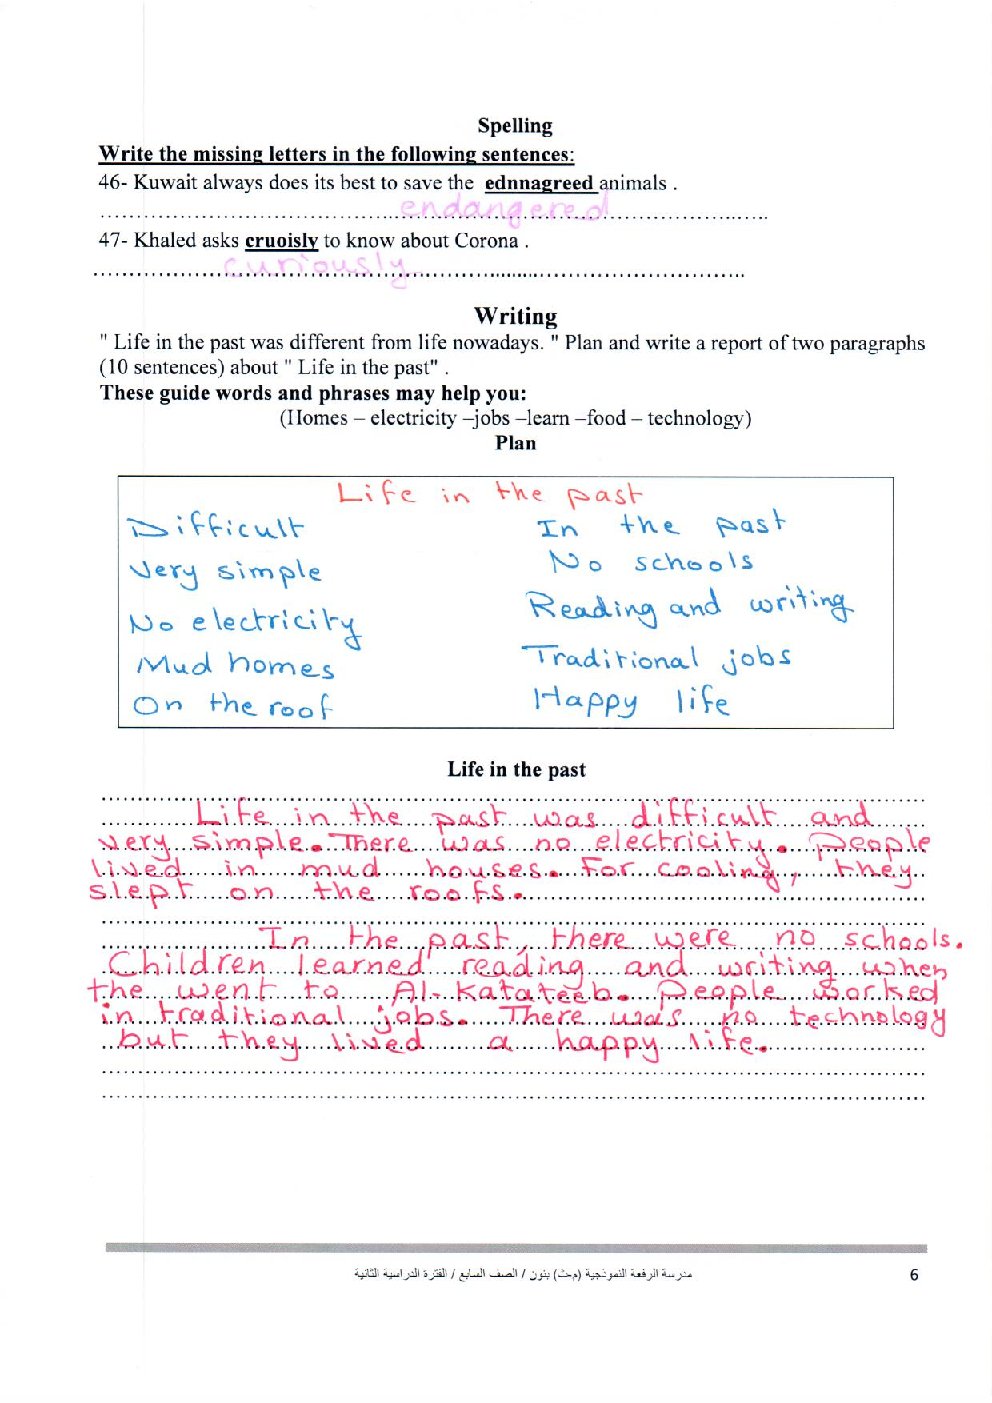 Spelling
Write the missing letters in the following sentences:
46- Kuwait always does its best to save the ednnagreed animals .
endangered
47- Khaled asks cruoisly to know about Corona .
curiously
Writing
" Life in the past was different from life nowadays. " Plan and write a report of two paragraphs
(10 sentences) about " Life in the past" .
These guide words and phrases may help you:
(Homes – electricity –jobs –learn –food – technology)
Plan
Life in the past
Difficult
Very simple
No electricity
Mud homes
On the roof
In the past
No schools
Reading and writing
Traditional jobs
Happy life
Life in the past
Life in the past was difficult and
very simple. There was no electricity. People
lived in mud houses. For cooling, they
slept on the roofs.
In the past, there were no schools.
Children learned reading and writing when
the went to Al-Katateeb. People worked
in traditional jobs. There was no technology
but they lived a happy life.
مدرسة الرفعة النموذجية (م-ث) بنون / الصف السابع / الفترة الدراسية الثانية
6